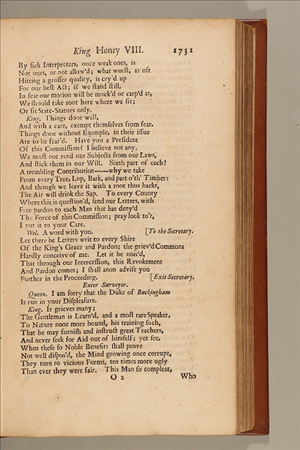 King Henry VIII. 1731
By sick Interpreters, once weak ones, is
Not ours, or not allow'd; what worst, as oft
Hitting a grosser quality, is cry'd up
For our best Act; if we stand still,
In fear our motion will be mock'd or carp'd at,
We should take root here where we sit;
Or sit State-Statues only.
King. Things done well,
And with a care, exempt themselves from fear.
Things done without Example, in their issue
Are to be fear'd. Have you a President
Of this Commission? I believe not any.
We must not rend our Subjects from our Laws,
And stick them in our Will. Sixth part of each!
A trembling Contribution——why we take
From every Tree, Lop, Bark, and part o'th' Timber:
And though we leave it with a root thus hackt,
The Air will drink the Sap. To every County
Where this is question'd, send our Letters, with
Free pardon to each Man that has deny'd
The Force of this Commission; pray look to't,
I put it to your Care.
Wol. A word with you. [To the Secretary.
Let there be Letters writ to every Shire
Of the King's Grace and Pardon; the griev'd Commons
Hardly conceive of me. Let it be nois'd,
That through our Intercession, this Revokement
And Pardon comes; I shall anon advise you
Further in the Proceeding. [Exit Secretary.
Enter Surveyor.
Queen. I am sorry that the Duke of Buckingham
Is run in your Displeasure.
King. It grieves many;
The Gentleman is Learn'd, and a most rare Speaker,
To Nature none more bound, his training such,
That he may furnish and instruct great Teachers,
And never seek for Aid out of himself; yet see,
When these so Noble Benefits shall prove
Not well dispos'd, the Mind growing once corrupt,
They turn to vicious Forms, ten times more ugly
Than ever they were fair. This Man so compleat,
O 2 Who